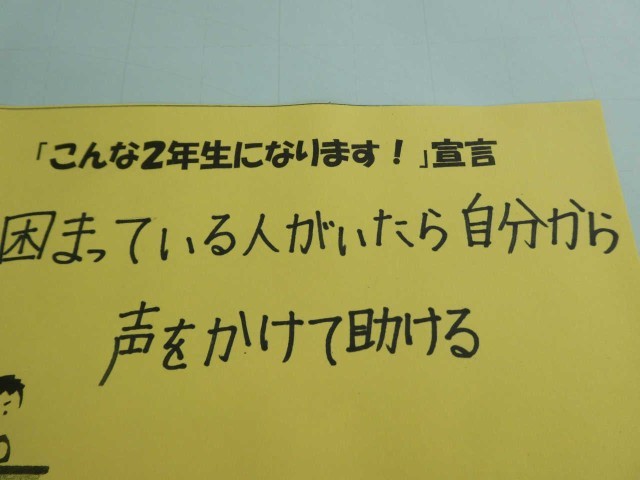 「こんな2年生になります!」宣言
困まっている人がいたら自分から
声をかけて助ける